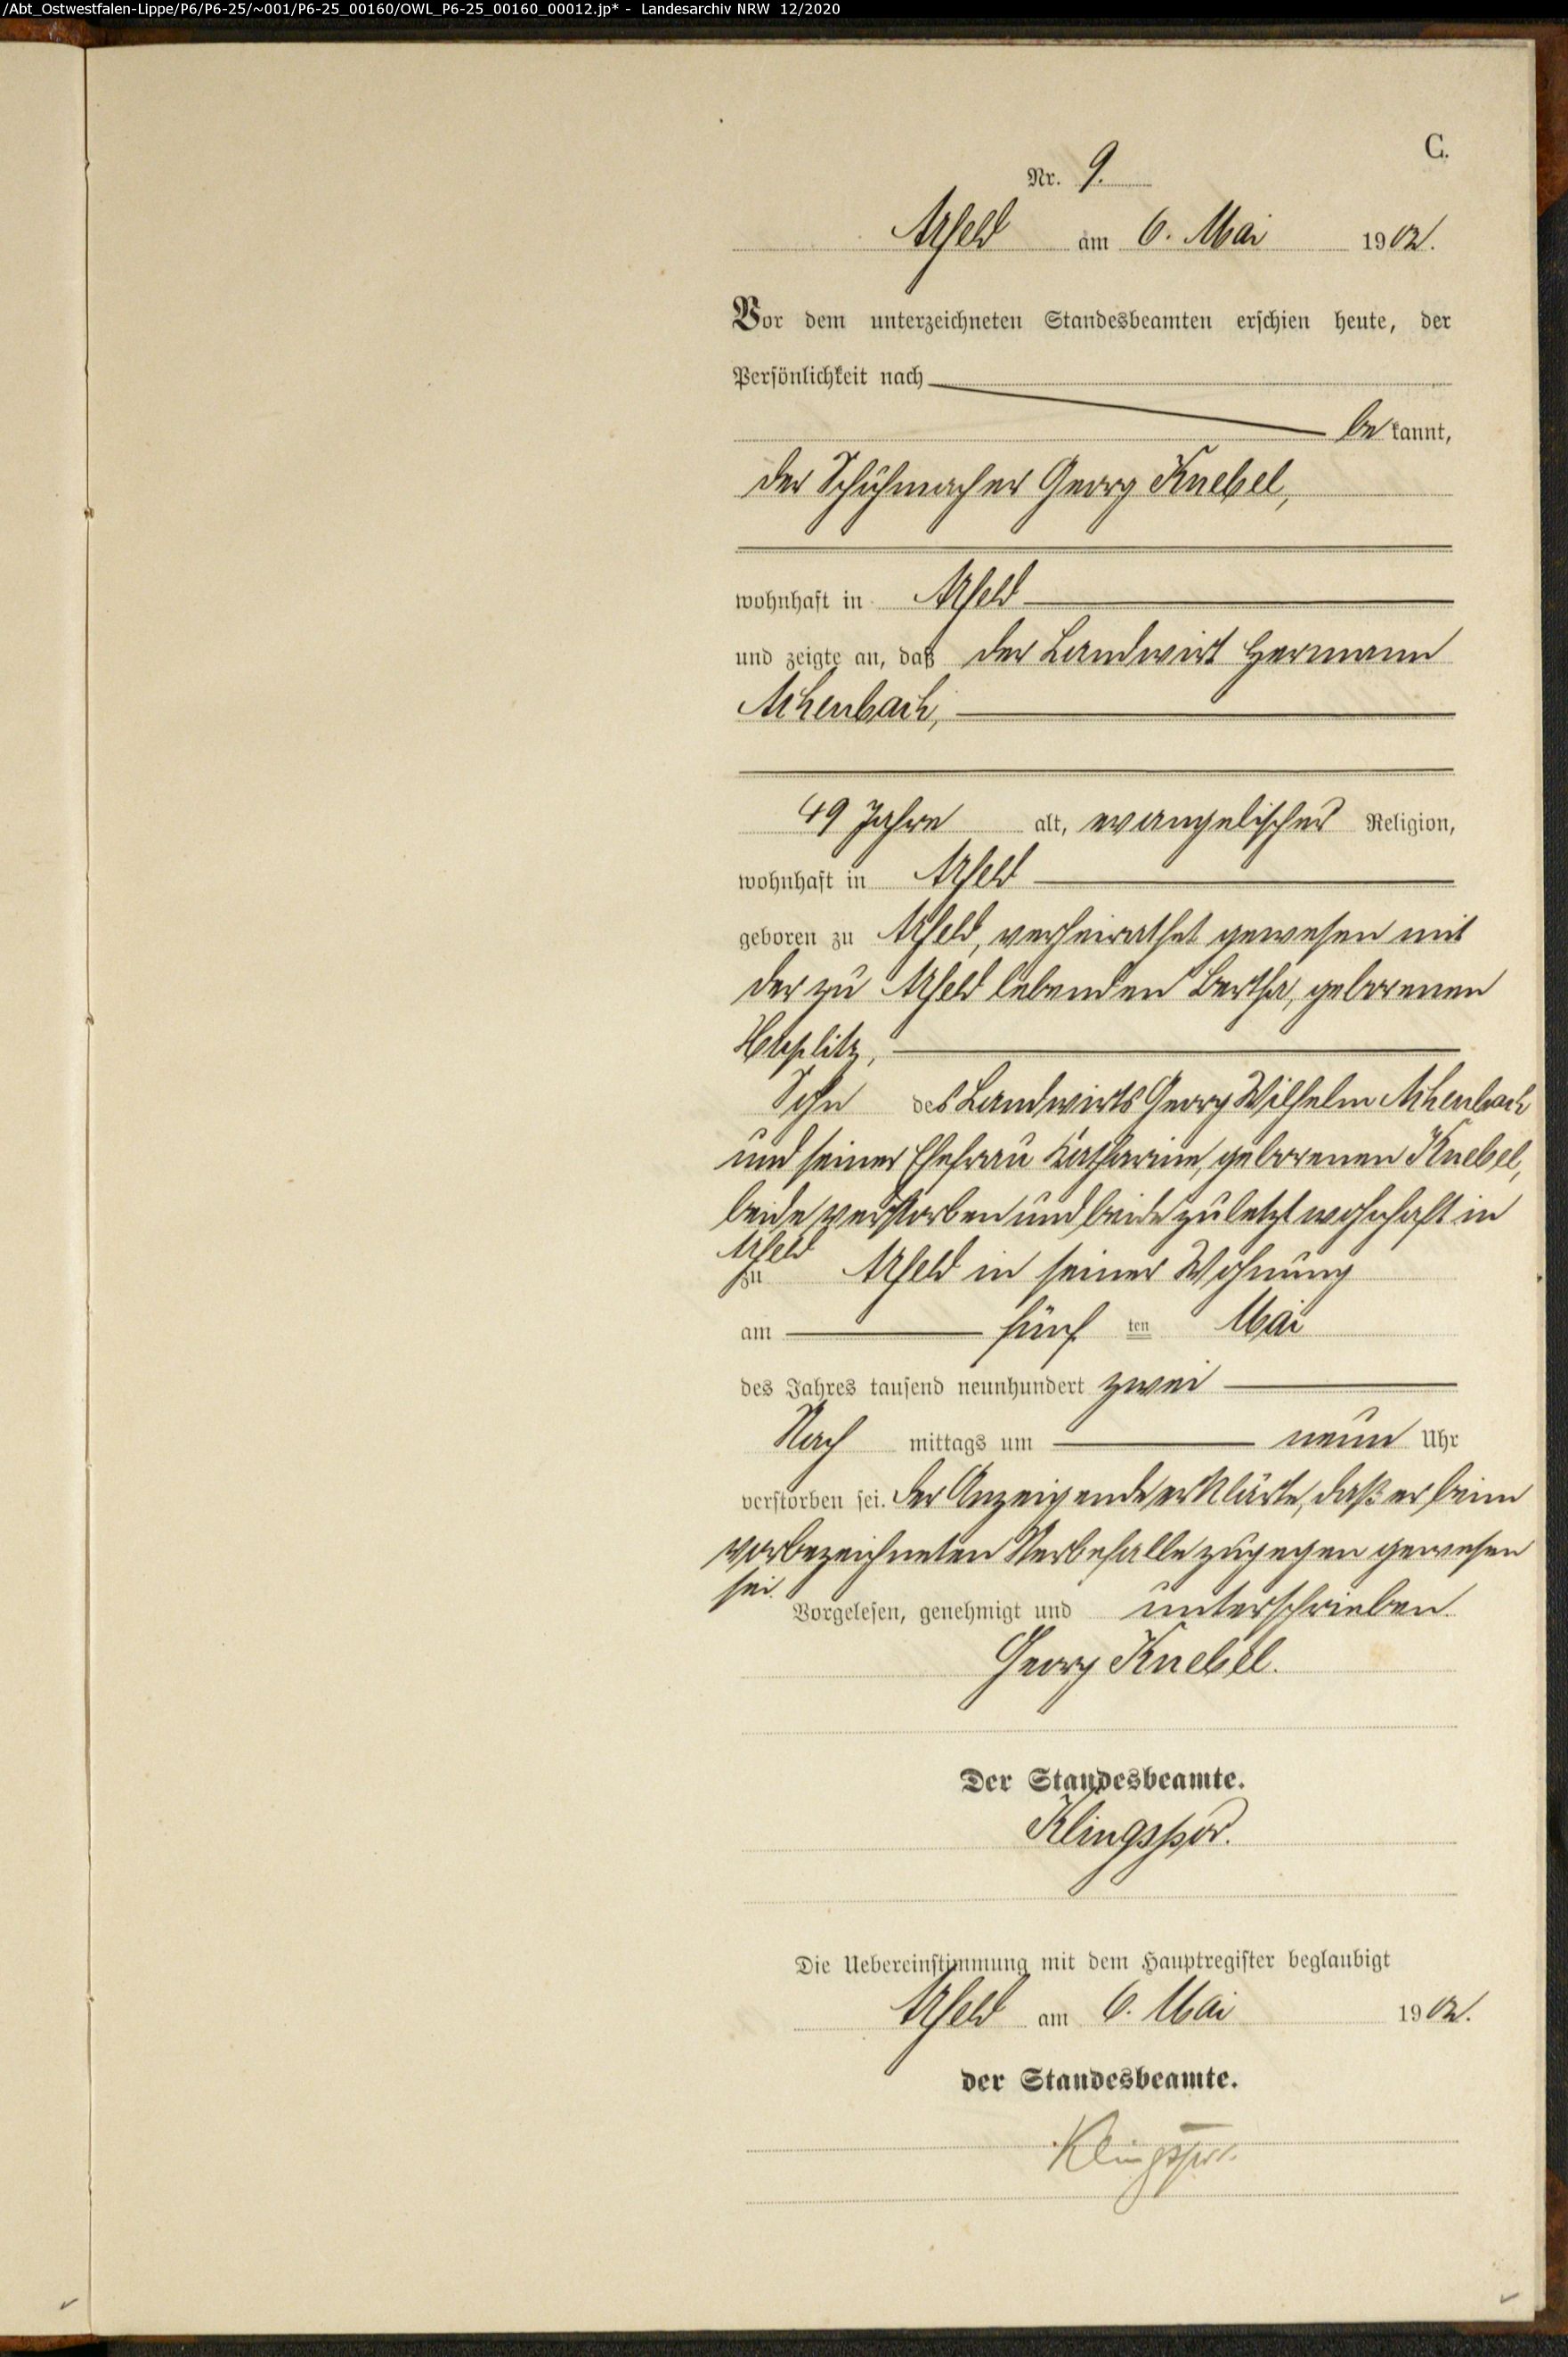 /Abt_Ostwestfalen-Lippe/P6/P6-25/~001/P6-25_00160/OWL_P6-25_00160_00012.jp* - Landesarchiv NRW 12/2020
C.
Nr. 9.
Arfeld am 6. Mai 1902.
Vor dem unterzeichneten Standesbeamten erschien heute, der
Persönlichkeit nach
be kannt,
der Schuhmacher Georg Knebel,
wohnhaft in Arfeld
und zeigte an, daß der Landwirt Hermann
Achenbach,
49 Jahre alt, evangelischer Religion,
wohnhaft in Arfeld
geboren zu Arfeld, verheirathet gewesen mit
der zu Arfeld lebenden Bertha, geborenen
Sohn des Landwirts Georg Wilhelm Achenbach
und seiner Ehefrau Katharine, geborenen Knebel,
beide verstorben und beide zuletzt wohnhaft in
Arfeld
zu Arfeld in seiner Wohnung
am fünf ten Mai
des Jahres tausend neunhundert zwei
Nach mittags um neun Uhr
verstorben sei. Der Anzeigende erklärte, daß er beim
vorbezeichneten Sterbefalle zugegen gewesen
sei.
Vorgelesen, genehmigt und unterschrieben.
Georg Knebel.
Der Standesbeamte.
Klingspor.
Die Uebereinstimmung mit dem Hauptregister beglaubigt
Arfeld am 6. Mai 1902.
der Standesbeamte.
Klingspor.